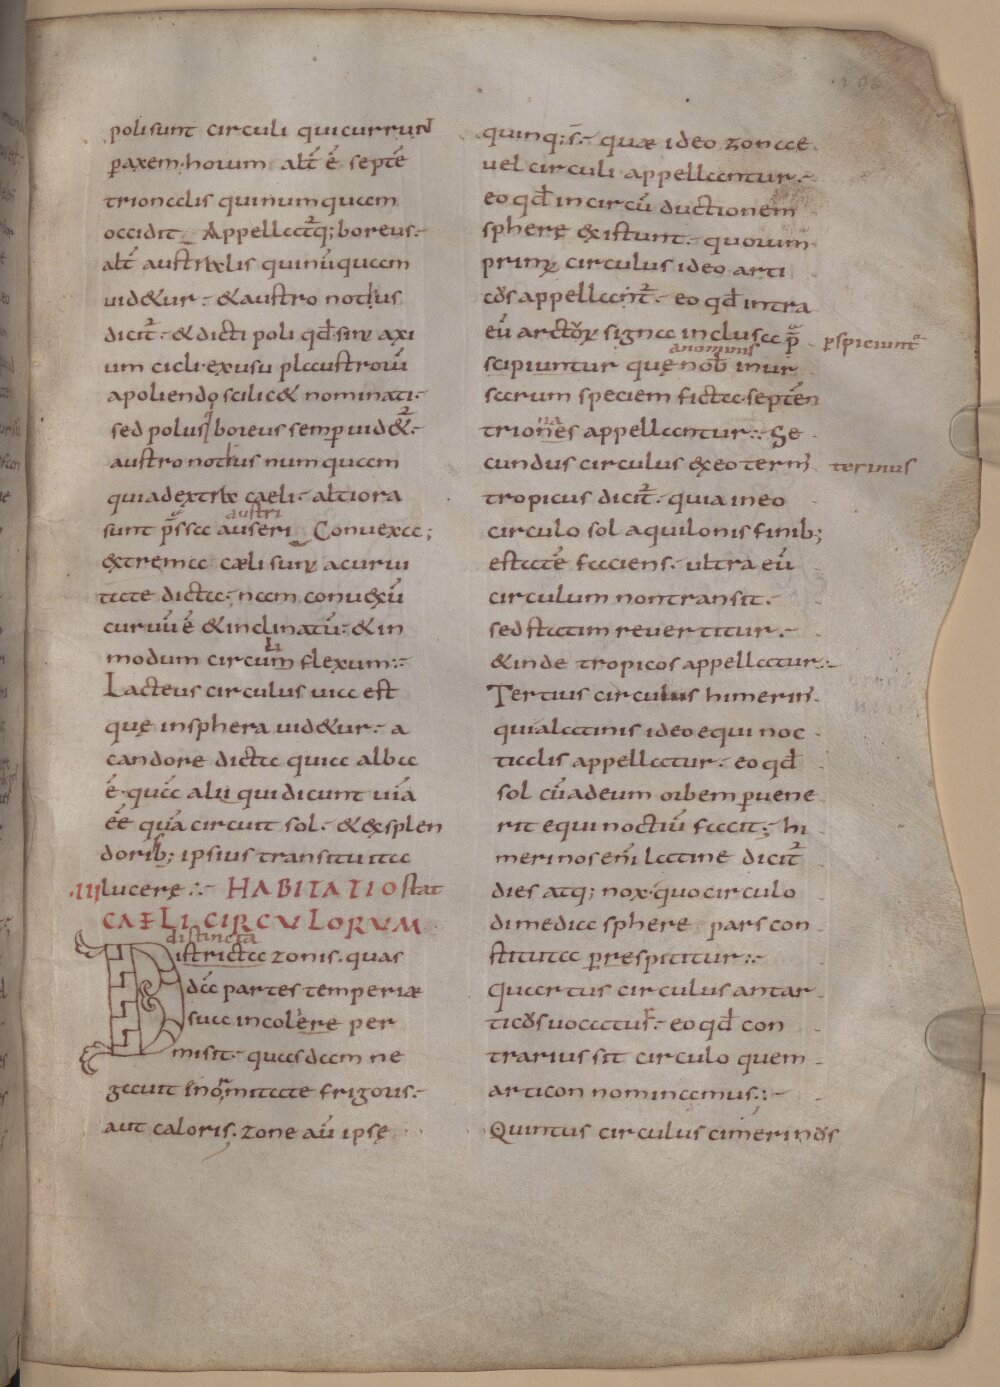 poli sunt circuli qui currunt
p axem. horum alt̄ ē septē
trionalis qui numquam
occidit. Appellat̄q; boreus.
alt̄ australis qui nūquam
uid&ur. & austro nothus
dicit̄. & dicti poli qđ sint axi
um cicli. ex usu plaustrorū
a poliendo scilic& nominati.
sed polus boreus semp uid&̄.
austro nothus numquam
quia dextra caeli. altiora
sunt p̄ssa auseri Conuexa;
austri
extrema cæli sunt a curui
tate dicta. nam conuexū
curuū ē & inclinatū. & in
modum circum flexum:
li
Lacteus circulus uia est
quę in sphera uid&ur. a
candore dicta quia alba
ē. quā alii qui dicunt uiā
ēē qua circuit sol. & exsplen
dorib; ipsius transitu ita
.III lucere: HABITATIO stat
CAELI CIRCULORUM
distincta
Districta zonis. quas
dā partes temperiæ
suae incolere per
misit. quasdam ne
gauit enormitate frigoris.
aut caloris. zone aū ipsę
quinq; s̄. quæ ideo zonae
uel circuli appellantur.
eo qđ in circū ductionem
spherę existunt. quorum
primꝰ circulus ideo arti
cos appellant̄. eo qđ intra
eū arctoꝝ signa inclusa p̄
pspiciunt̄
anominis
scipiuntur quę nob̄ in ur
sarum speciem ficta septen
na
triones appellantur: Se
cundus circulus ex eo term̄
terinus
tropicus dicit̄. quia in eo
circulo sol aquilonis finib;
estatē faciens. ultra eū
circulum non transit.
sed statim reuertitur.
& inde tropicos appellatur:
Tertius circulus himerin̄
qui a latinis ideo equi noc
tialis appellatur. eo qđ
sol cū ad eum orbem puene
rit equi noctiū facit; hi
merinos eni latine dicit̄
dies atq; nox. quo circulo
dimedia sphere pars con
stituta prespititur:
Quartus circulus antar
ticos uocatus. eo qđ con
trarius sit circulo quem
articon nominamus:
Quintus circulus cimerinos